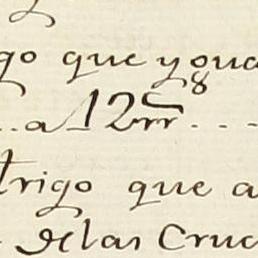 go que yova
a 12 rr 8
trigo que a
de las Cruc